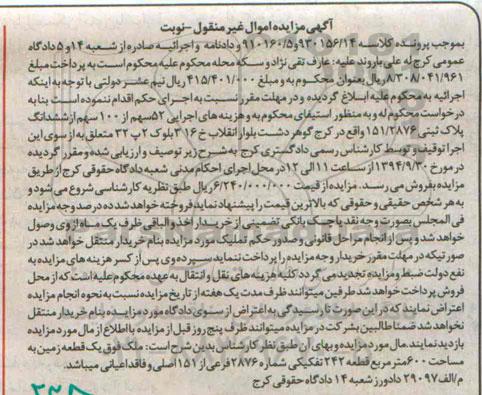 آگهی مزایده اموال غیر منقول - نوبت
بموجب پرونده کلاسه ۹۳۰۱۵۶/۱۴ و ۹۱۰۱۶۰/۵ و دادنامه و اجرائیه صادره از شعبه ۱۴ و ۵ دادگاه
عمومی کرج له علی باروند علیه: عارف تقی نژاد و سکه محله محکوم علیه محکوم است به پرداخت مبلغ
۸/۳۰۸/۰۴۱/۹۶۱ ریال بعنوان محکوم به و مبلغ ۴۱۵/۴۰۱/۰۰۰ ریال نیم عشر دولتی با توجه به اینکه
اجرائیه به محکوم علیه ابلاغ گردیده و در مهلت مقرر نسبت به اجرای حکم اقدام ننموده است بنا به
درخواست محکوم له و به منظور استیفای محکوم به و هزینه های اجرایی ۵۲ سهم از ۱۰۰ سهم از ششدانگ
پلاک ثبتی ۱۵۱/۲۸۷۶ واقع در کرج گوهردشت بلوار انقلاب خ ۳۱۶ بلوک ۲ پ ۳۲ متعلق به از سوی این
اجرا توقیف و توسط کارشناس رسمی دادگستری کرج به شرح زیر توصیف و ارزیابی شده و مقرر گردیده
در مورخ ۱۳۹۴/۹/۳۰ از ساعت ۱۱ الی ۱۲ در محل اجرای احکام مدنی شعبه دادگاه حقوقی کرج از طریق
مزایده بفروش می رسد. مزایده از قیمت ۶/۲۴۰/۰۰۰/۰۰۰ ریال طبق نظریه کارشناسی شروع می شود و
به هر شخص حقیقی و حقوقی که بالاترین قیمت را پیشنهاد نماید فروخته خواهد شد ده درصد وجه مزایده
فی المجلس بصورت وجه نقد یا چک بانکی تضمینی از خریدار اخذ والباقی ظرف یک ماه از وی وصول
خواهد شد و پس از انجام مراحل قانونی و صدور حکم تملیک مورد مزایده بنام خریدار منتقل خواهد شد در
صورتیکه در مهلت مقرر خریدار وجه مزایده را پرداخت ننماید سپرده وی پس از کسر هزینه های مزایده به
نفع دولت ضبط و مزایده تجدید می گردد کلیه هزینه های نقل و انتقال به عهده محکوم علیه است که از محل
فروش پرداخت خواهد شد طرفین میتوانند ظرف مدت یک هفته از تاریخ مزایده نسبت به نحوه انجام مزایده
اعتراض نمایند که در این صورت تا رسیدگی به اعتراض از سوی دادگاه مورد مزایده بنام خریدار منتقل
نخواهد شد ضمنا طالبین بشرکت در مزایده میتوانند ظرف پنج روز قبل از مزایده با اطلاع از مال مورد مزایده
بازدید نمایند. مال مورد مزایده و بهای آن طبق نظر کارشناس بدین شرح است: ملک فوق یک قطعه زمین به
مساحت ۶۰۰ متر مربع قطعه ۲۴۲ تفکیکی شماره ۲۸۷۶ فرعی از ۱۵۱ اصلی و فاقد اعیانی میباشد.
م/الف ۲۹۰۹۷ دادورز شعبه ۱۴ دادگاه حقوقی کرج